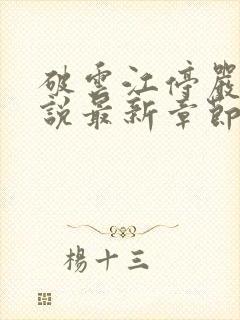 破雲江停嚴
說最新章節
楊十三